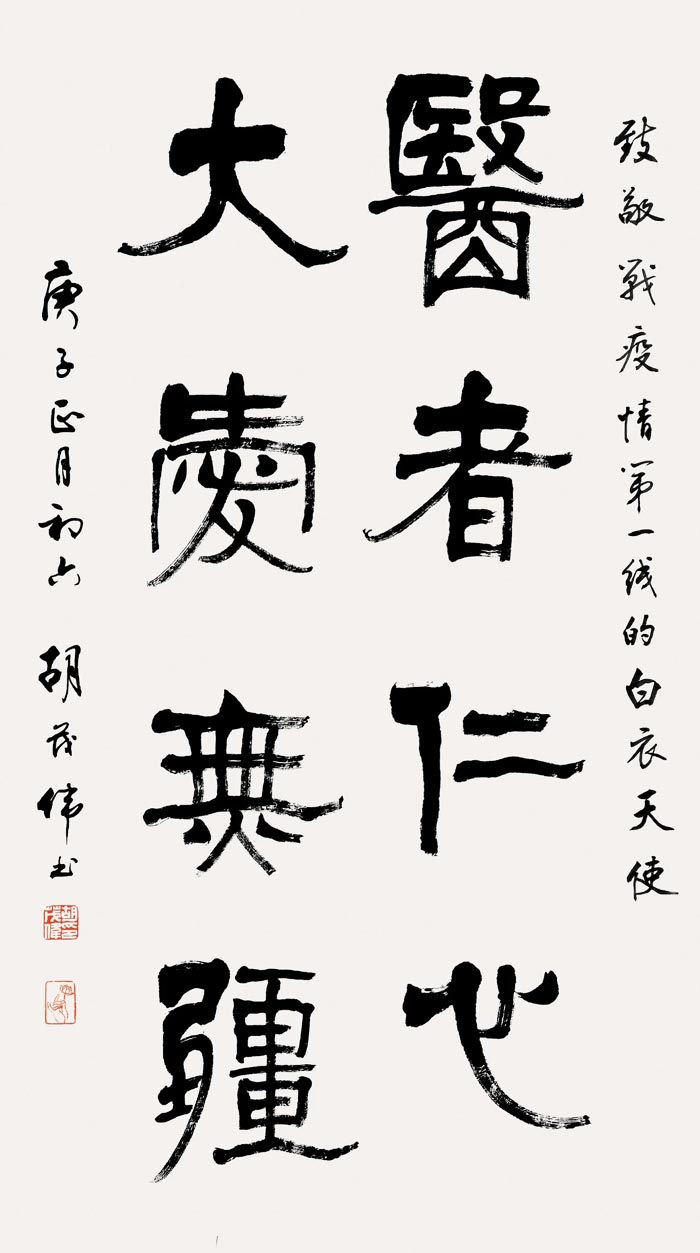 致敬戰疫情第一线的白衣天使
醫者仁心
大愛無疆
庚子正月初六 胡茂伟书